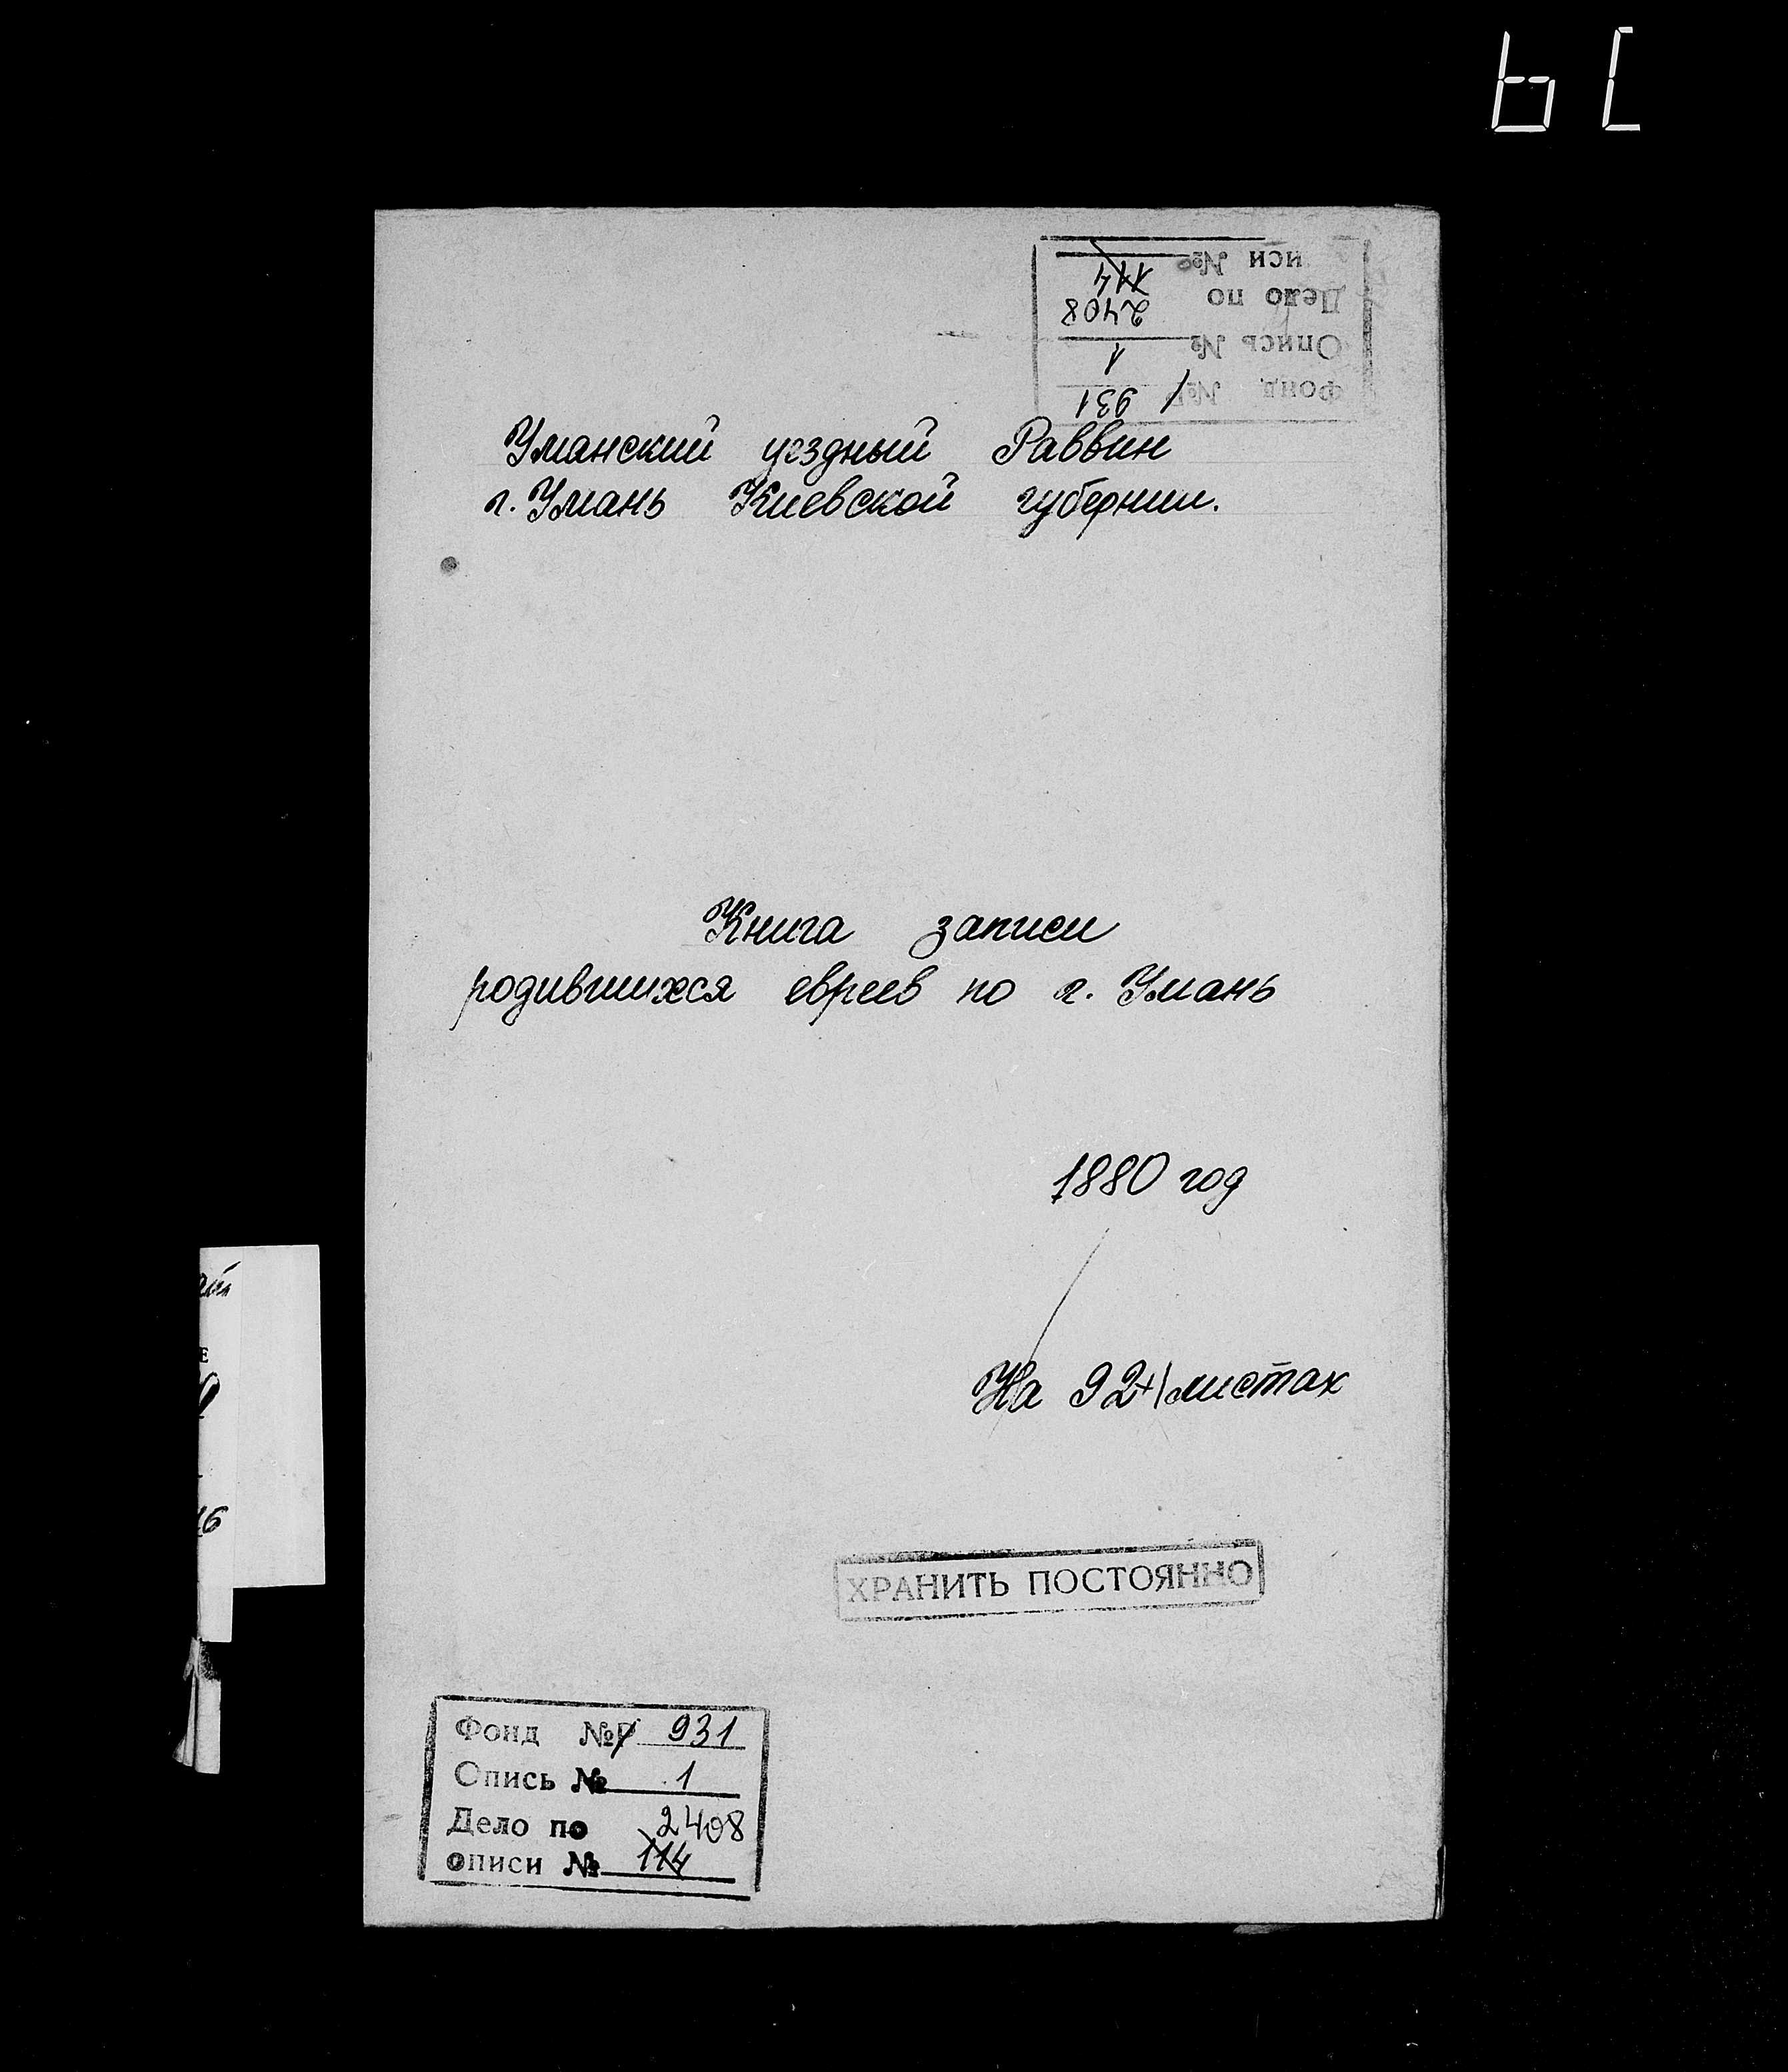 иси № 114
Дело по 2408
Опись № 1
Фонд № 931
Уманский уездный Раввин
г. Умань Киевской губернии.
Книга записи
родившихся евреев по г. Умань
1880 год
На 92+1 листах
ХРАНИТЬ ПОСТОЯННО
Фонд № 931
Опись № 1
Дело по 2408
описи № 114